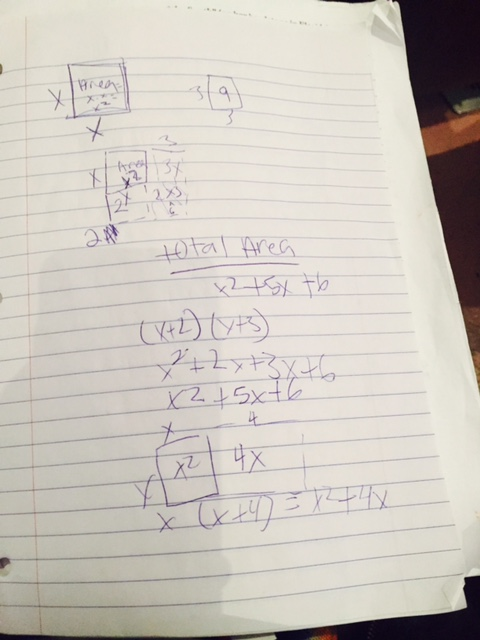 Area=
x
x
3 9
3
3
x Area 3x
x2
2x 2x3
6
2
total Area
x2+5x+6
(x+2)(x+3)
x2+2x+3x+6
x2+5x+6
x 4
x x2 4x
x (x+4) = x2+4x